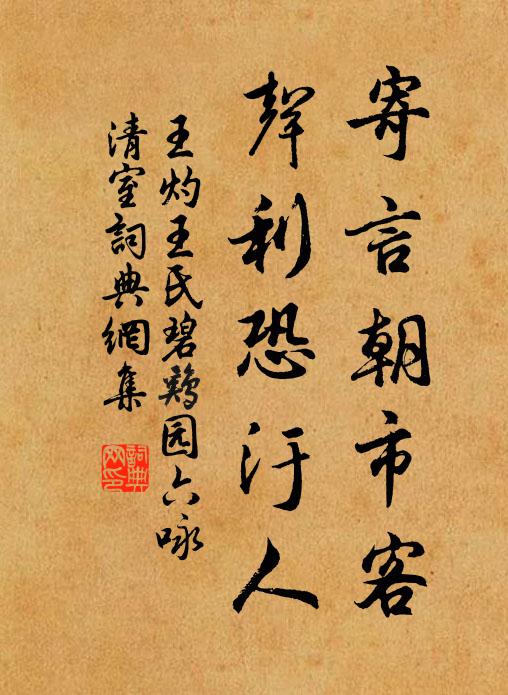 寄言朝市客
聲利恐汙人
王灼王氏碧鷄园六咏
清室詞典網集
詞典
网印